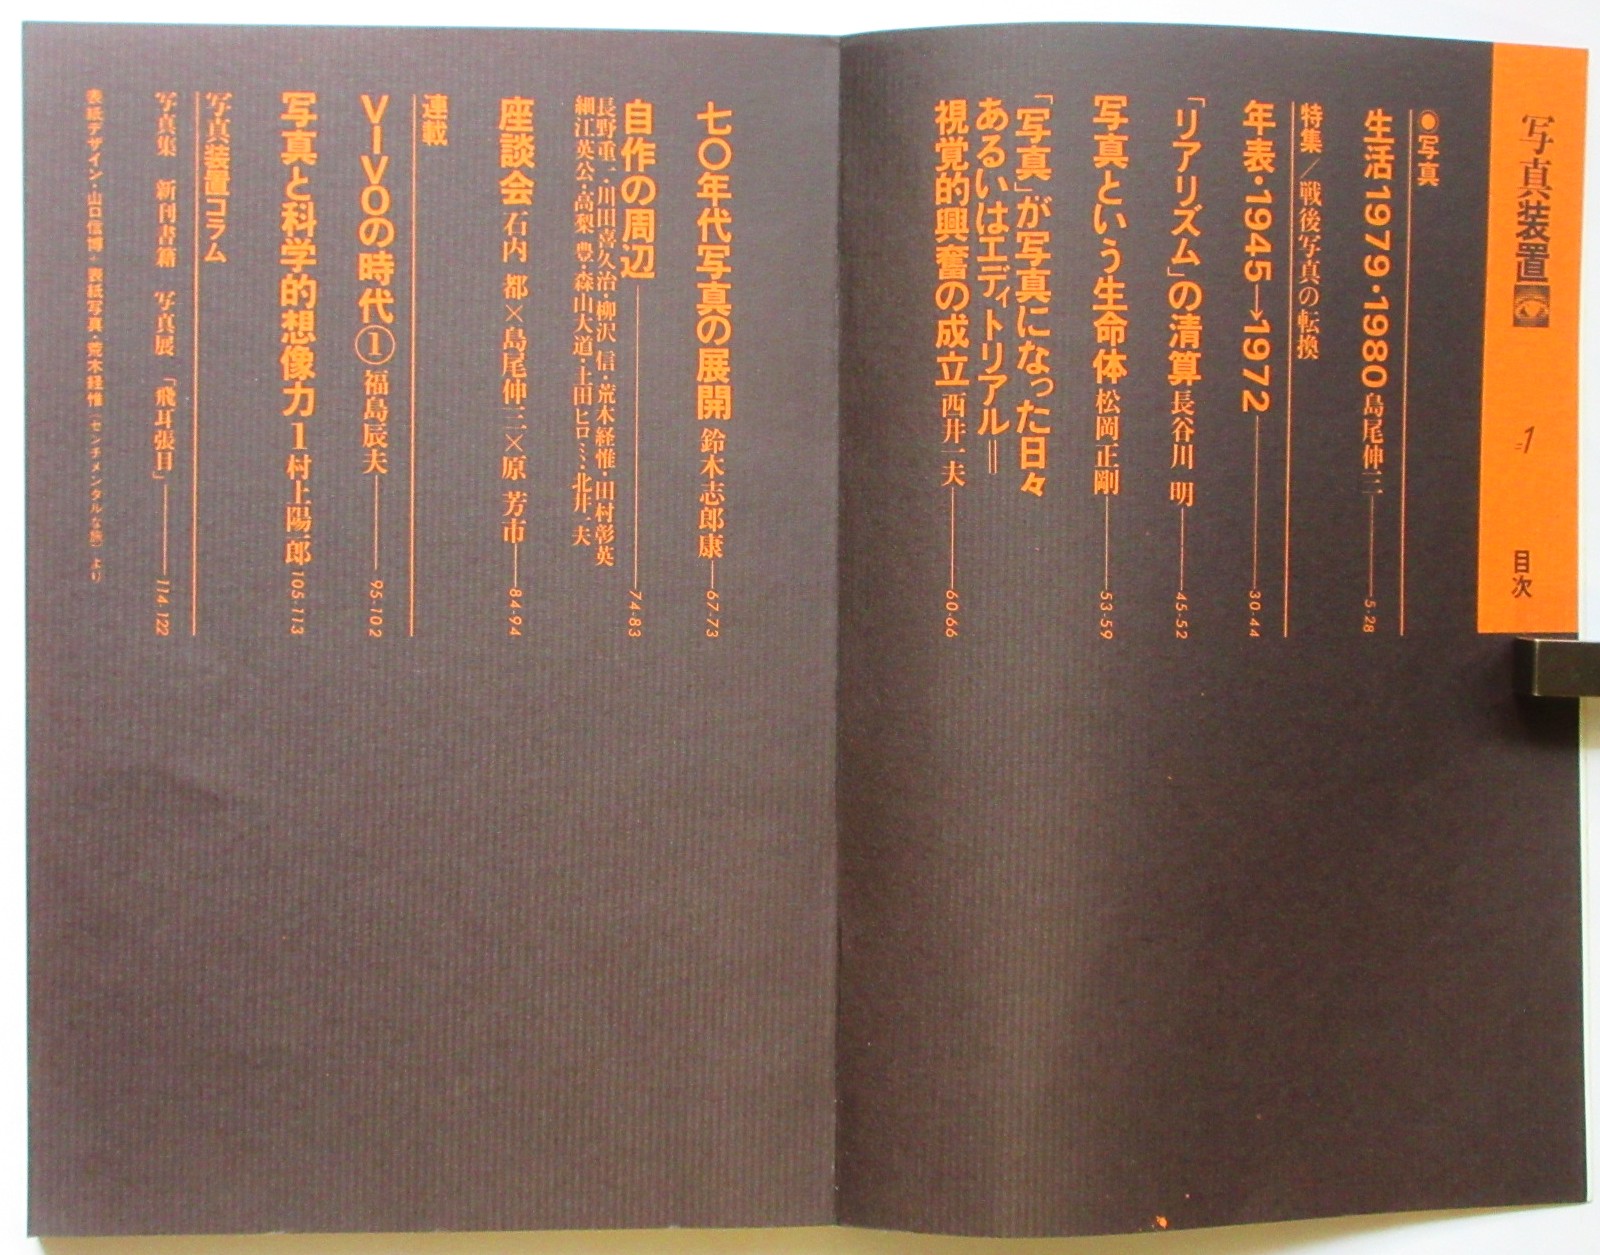 写真装置 =1 目次
◉写真
生活1979・1980 島尾伸三 5・28
特集／戦後写真の転換
年表・1945→1972 30・44
「リアリズム」の清算 長谷川 明 45・52
写真という生命体 松岡正剛 53・59
「写真」が写真になった日々
あるいはエディトリアル＝
視覚的興奮の成立 西井一夫 60・66
七〇年代写真の展開 鈴木志郎康 67・73
自作の周辺 74・83
長野重一・川田喜久治・柳沢 信・荒木経惟・田村彰英
細江英公・高梨 豊・森山大道・土田ヒロミ・北井一夫
座談会 石内 都×島尾伸三×原 芳市 84・94
連載
VIVOの時代① 福島辰夫 95・102
写真と科学的想像力1 村上陽一郎 105・113
写真装置コラム
写真集 新刊書籍 写真展 「飛耳張目」 114・122
表紙デザイン・山口信博・表紙写真・荒木経惟（センチメンタルな旅）より